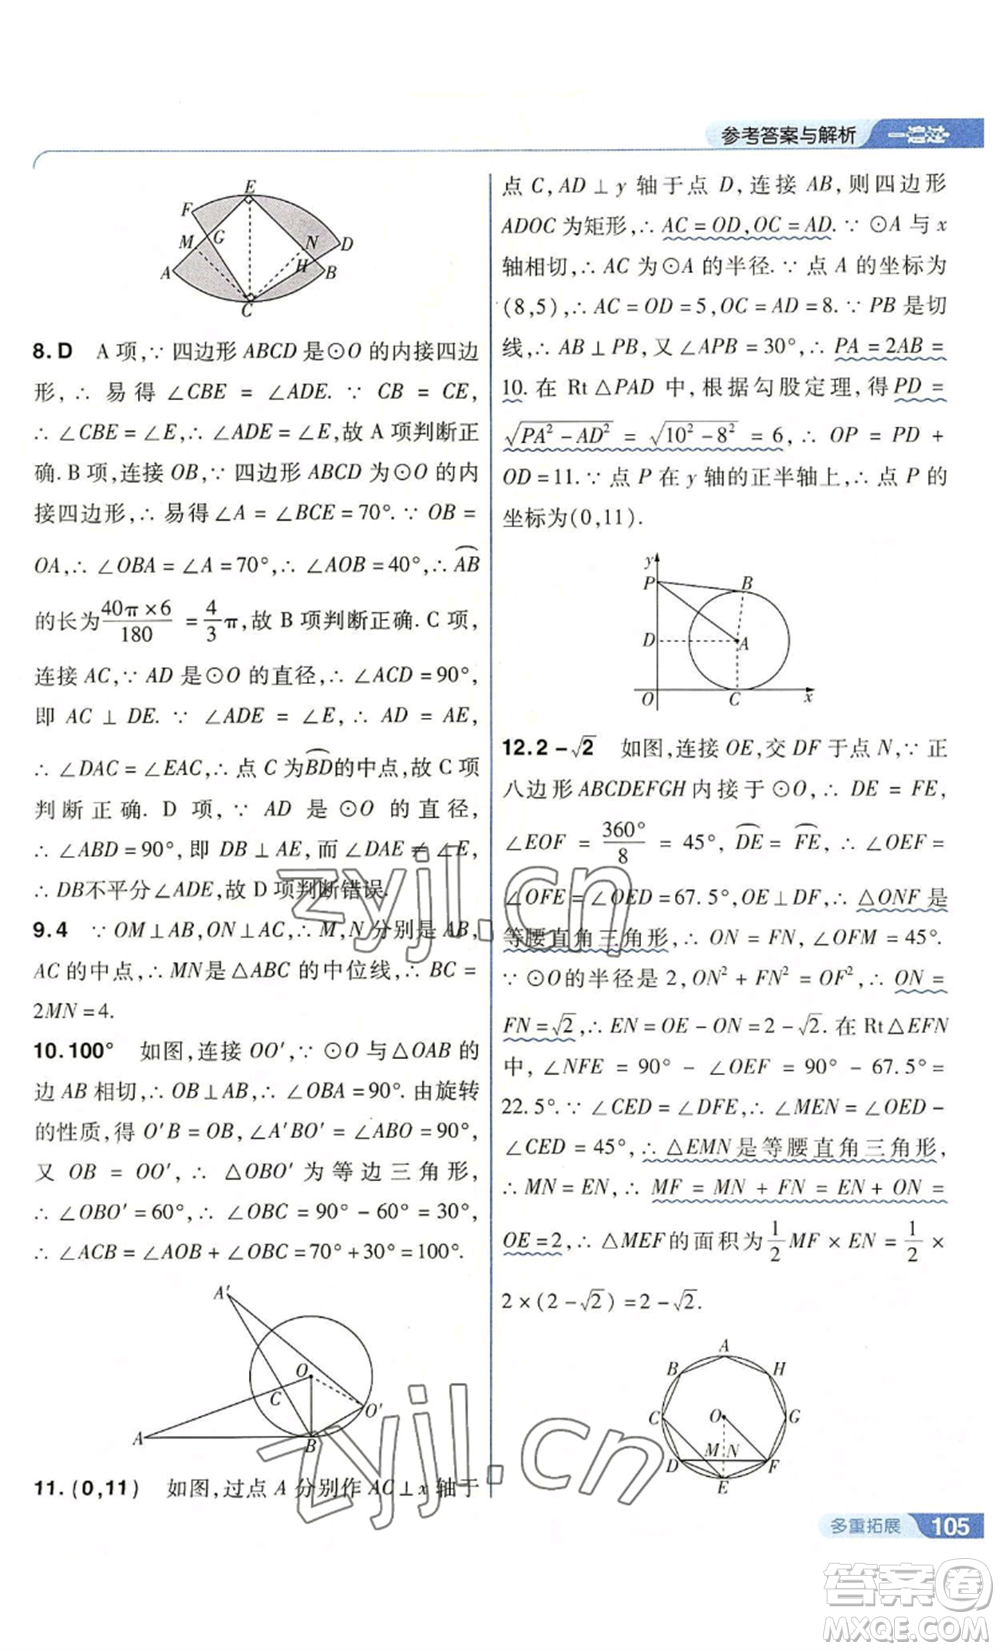 参考答案与解析
E
F
M
G
N
D
A
H
B
C
8.D A 项,∵ 四边形 ABCD 是⊙O 的内接四边
形,∴ 易得 ∠CBE = ∠ADE. ∵ CB = CE,
∴ ∠CBE = ∠E,∴ ∠ADE = ∠E,故 A 项判断正
确. B 项,连接 OB,∵ 四边形 ABCD 为⊙O 的内
接四边形,∴ 易得∠A = ∠BCE = 70°. ∵ OB =
OA,∴ ∠OBA = ∠A = 70°,∴ ∠AOB = 40°,∴ \overset{\frown}{AB}
的长为\frac{40π×6}{180} = \frac{4}{3}π,故 B 项判断正确. C 项,
连接 AC,∵ AD 是⊙O 的直径,∴ ∠ACD = 90°,
即 AC ⊥ DE. ∵ ∠ADE = ∠E,∴ AD = AE,
∴ ∠DAC = ∠EAC,∴ 点 C 为\overset{\frown}{BD}的中点,故 C 项
判断正确. D 项,∵ AD 是 ⊙O 的直径,
∴ ∠ABD = 90°,即 DB ⊥ AE,而 ∠DAE ≠ ∠E,
∴ DB不平分∠ADE,故 D 项判断错误.
9.4 ∵ OM⊥AB,ON⊥AC,∴ M,N 分别是 AB,
AC 的中点,∴ MN是△ABC 的中位线,∴ BC =
2MN = 4.
10.100° 如图,连接 OO′,∵ ⊙O 与△OAB 的
边 AB 相切,∴ OB⊥AB,∴ ∠OBA = 90°. 由旋转
的性质,得 O′B = OB,∠A′BO′ = ∠ABO = 90°,
又 OB = OO′,∴ △OBO′ 为等边三角形,
∴ ∠OBO′ = 60°,∴ ∠OBC = 90° - 60° = 30°,
∴ ∠ACB = ∠AOB + ∠OBC = 70° + 30° = 100°.
A′
O
C
O′
A
B
11.(0,11) 如图,过点 A 分别作 AC⊥x 轴于
点 C,AD ⊥ y 轴于点 D,连接 AB,则四边形
ADOC 为矩形,∴ AC = OD,OC = AD. ∵ ⊙A 与 x
轴相切,∴ AC 为⊙A 的半径. ∵ 点 A 的坐标为
(8,5),∴ AC = OD = 5,OC = AD = 8. ∵ PB 是切
线,∴ AB ⊥ PB,又∠APB = 30°,∴ PA = 2AB =
10. 在 Rt △PAD 中,根据勾股定理,得 PD =
\sqrt{PA² - AD²} = \sqrt{10² - 8²} = 6,∴ OP = PD +
OD = 11. ∵ 点 P 在 y 轴的正半轴上,∴ 点 P 的
坐标为(0,11).
y
P
B
D
A
O
C
x
12.2 - √2 如图,连接 OE,交 DF 于点 N,∵ 正
八边形 ABCDEFGH 内接于⊙O,∴ DE = FE,
∠EOF = \frac{360°}{8} = 45°,\overset{\frown}{DE} = \overset{\frown}{FE},∴ ∠OEF =
∠OFE = ∠OED = 67.5°,OE⊥DF,∴ △ONF 是
等腰直角三角形,∴ ON = FN,∠OFM = 45°.
∵ ⊙O 的半径是 2,ON² + FN² = OF²,∴ ON =
FN = √2,∴ EN = OE - ON = 2 - √2. 在 Rt△EFN
中,∠NFE = 90° - ∠OEF = 90° - 67.5° =
22.5°. ∵ ∠CED = ∠DFE,∴ ∠MEN = ∠OED -
∠CED = 45°,∴ △EMN 是等腰直角三角形,
∴ MN = EN,∴ MF = MN + FN = EN + ON =
OE = 2,∴ △MEF 的面积为\frac{1}{2}MF × EN = \frac{1}{2} ×
2×(2 - √2) = 2 - √2.
A
B
H
C
O
G
M
N
D
F
E
zyjl.cn
zyjl.cn
多重拓展
105
答案圈
MXQE.COM